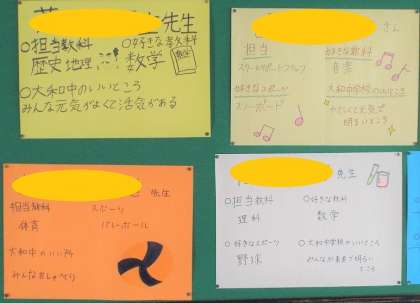 先生
○担当教科
歴史 地理
○好きな教科
数学
○大和中のいいところ
みんな元気がよくて活気がある
さん
担当
スクールサポートスタッフ
好きな教科
音楽
好きなスポーツ
スノーボード
大和中学校のいいところ
やさしくて元気で
明るいところ
先生
担当教科
体育
スポーツ
バレーボール
大和中のいい所
みんなおしゃべり
先生
○担当教科
理科
○好きな教科
数学
○好きなスポーツ
野球
○大和中学校のいいところ
みんなが素直で明るい
ところ